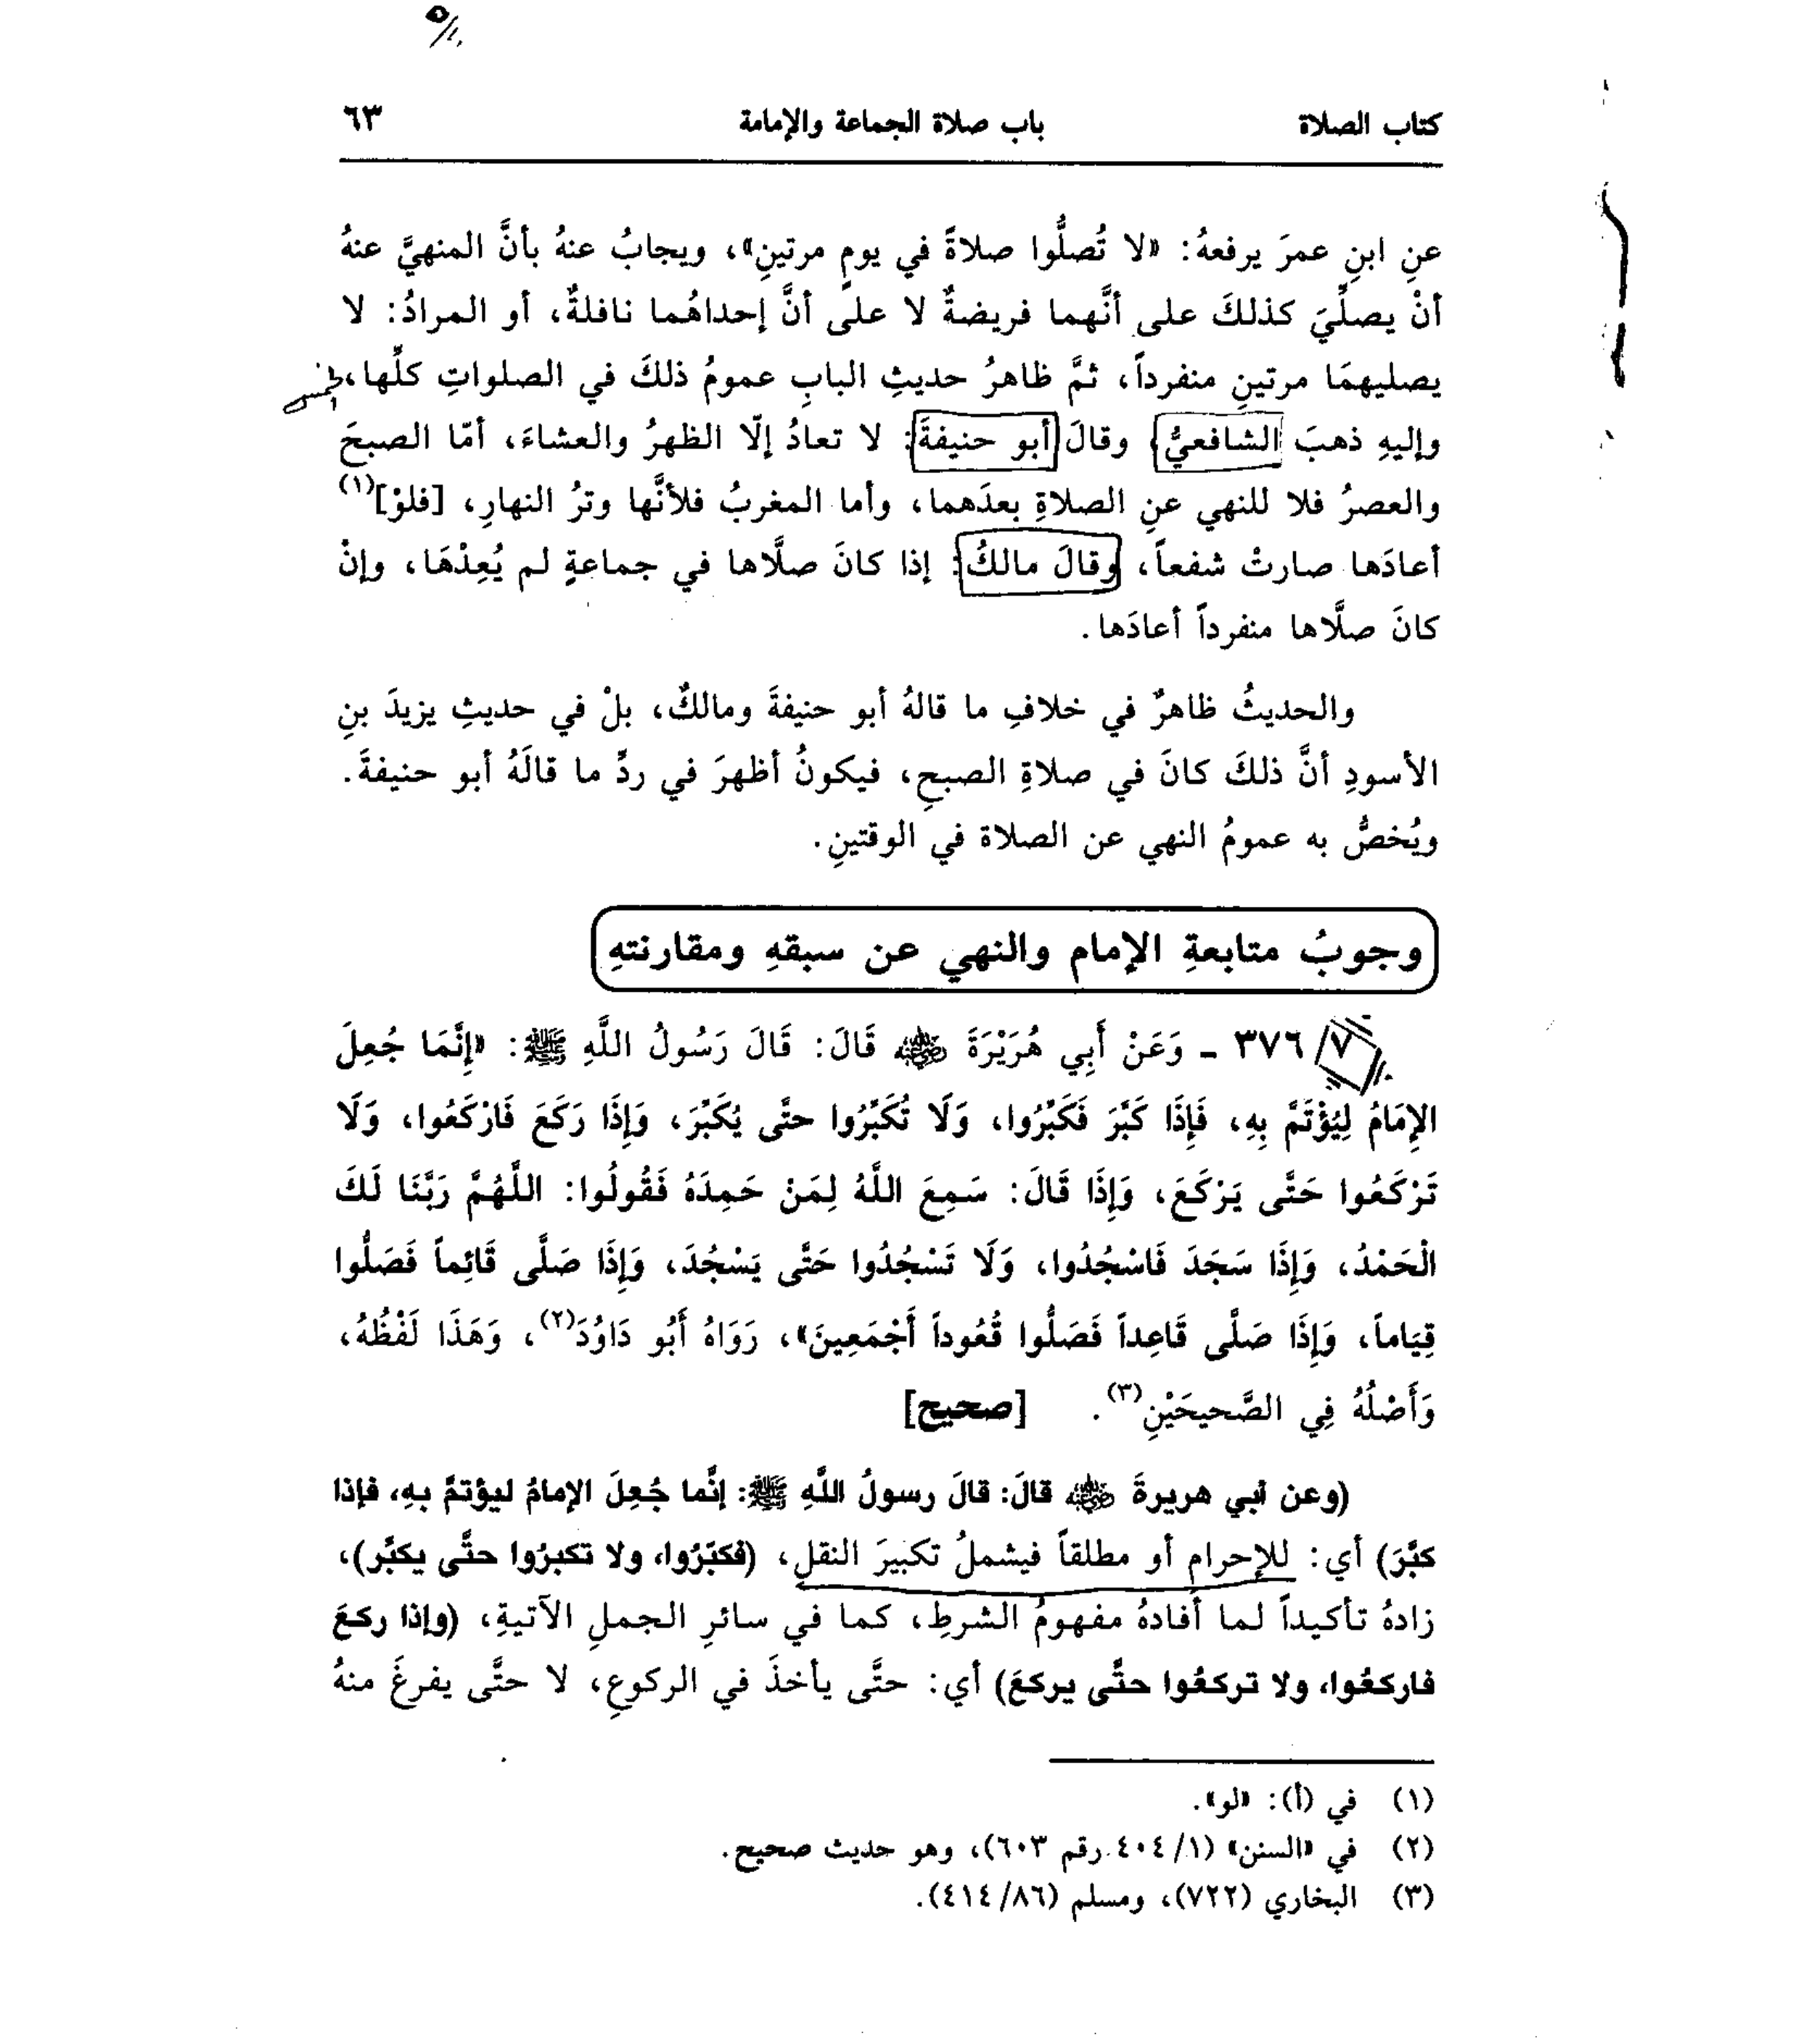 كتاب الصلاة باب صلاة الجماعة والإمامة ٦٣
عنِ ابنِ عمرَ يرفعهُ: «لا تُصلُّوا صلاةً في يومٍ مرتينِ»، ويجابُ عنهُ بأنَّ المنهيَّ عنهُ
أنْ يصلِّيَ كذلكَ على أنَّهما فريضةٌ لا على أنَّ إحداهُما نافلةٌ، أو المرادُ: لا
يصليهمَا مرتينِ منفرداً، ثمَّ ظاهرُ حديثِ البابِ عمومُ ذلكَ في الصلواتِ كلِّها،
وإليهِ ذهبَ الشافعيُّ، وقالَ أبو حنيفةَ: لا تعادُ إلّا الظهرُ والعشاءَ، أمّا الصبحَ
والعصرُ فلا للنهي عنِ الصلاةِ بعدَهما، وأما المغربُ فلأنَّها وترُ النهارِ، [فلوْ](١)
أعادَها صارتْ شفعاً، وقالَ مالكُ: إذا كانَ صلَّاها في جماعةٍ لم يُعِدْهَا، وإنْ
كانَ صلَّاها منفرداً أعادَها.
والحديثُ ظاهرٌ في خلافِ ما قالهُ أبو حنيفةَ ومالكٌ، بلْ في حديثِ يزيدَ بنِ
الأسودِ أنَّ ذلكَ كانَ في صلاةِ الصبحِ، فيكونُ أظهرَ في ردِّ ما قالَهُ أبو حنيفةَ.
ويُخصُّ به عمومُ النهي عن الصلاة في الوقتينِ.
وجوبُ متابعةِ الإمام والنهي عن سبقهِ ومقارنتهِ
٧/ ٣٧٦ - وَعَنْ أَبِي هُرَيْرَةَ ﵁ قَالَ: قَالَ رَسُولُ اللَّهِ ﷺ: «إِنَّمَا جُعِلَ
الإِمَامُ لِيُؤْتَمَّ بِهِ، فَإِذَا كَبَّرَ فَكَبِّرُوا، وَلَا تُكَبِّرُوا حتَّى يُكَبِّرَ، وَإِذَا رَكَعَ فَارْكَعُوا، وَلَا
تَرْكَعُوا حَتَّى يَرْكَعَ، وَإِذَا قَالَ: سَمِعَ اللَّهُ لِمَنْ حَمِدَهُ فَقُولُوا: اللَّهُمَّ رَبَّنَا لَكَ
الْحَمْدُ، وَإِذَا سَجَدَ فَاسْجُدُوا، وَلَا تَسْجُدُوا حَتَّى يَسْجُدَ، وَإِذَا صَلَّى قَائِماً فَصَلُّوا
قِيَاماً، وَإِذَا صَلَّى قَاعِداً فَصَلُّوا قُعُوداً أَجْمَعِينَ»، رَوَاهُ أَبُو دَاوُدَ(٢)، وَهَذَا لَفْظُهُ،
وَأَصْلُهُ فِي الصَّحيحَيْنِ(٣). [صحيح]
(وعن أبي هريرةَ ﵁ قالَ: قالَ رسولُ اللَّهِ ﷺ: إنَّما جُعِلَ الإمامُ ليؤتمَّ بهِ، فإذا
كبَّرَ) أي: للإحرامِ أو مطلقاً فيشملُ تكبيرَ النقلِ، (فكبّرُوا، ولا تكبرُوا حتَّى يكبَّر)،
زادهُ تأكيداً لما أفادهُ مفهومُ الشرطِ، كما في سائرِ الجملِ الآتيةِ، (وإذا ركعَ
فاركعُوا، ولا تركعُوا حتَّى يركعَ) أي: حتَّى يأخذَ في الركوعِ، لا حتَّى يفرغَ منهُ
(١) في (أ): «لو».
(٢) في «السنن» (١/ ٤٠٤ رقم ٦٠٣)، وهو حديث صحيح.
(٣) البخاري (٧٢٢)، ومسلم (٨٦/ ٤١٤).